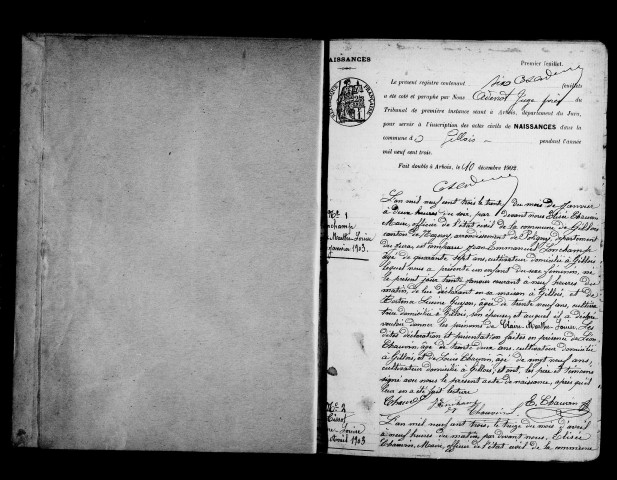 NAISSANCES
Premier feuillet.
Le présent registre contenant six feuillets
a été coté et paraphé par Nous Juge près du
Tribunal de première instance séant à Arbois, département du Jura,
pour servir à l'inscription des actes civils de NAISSANCES dans la
commune de Gillois pendant l'année
mil neuf cent trois.
Fait double à Arbois, le 10 décembre 1902
RÉPUBLIQUE FRANÇAISE
No 1
Lonchamp
Marthe-Louise
janvier 1903.
L'an mil neuf cent trois le trente du mois de Janvier
à deux heures du soir, par devant nous Elisée Chauvin
Maire, officier de l'état civil de la commune de Gillois
canton de Nozeroy, arrondissement de Poligny, département
du Jura, est comparu Jean Emmanuel Lonchamp
âgé de quarante sept ans, cultivateur domicilié à Gillois
lequel nous a présenté un enfant du sexe féminin, né
le présent jour trente janvier courant à neuf heures du
matin, de lui déclarant en sa maison à Gillois, et de
Guyon, âgée de trente neuf ans, cultiva
trice domiciliée à Gillois, son épouse, et auquel il a déclaré
vouloir donner les prénoms de Claire-Marthe-Louise. Les
dites déclaration et présentation faites en présence de Léon
Chauvin, âgé de trente cinq ans, cultivateur domicilié
à Gillois, et de Louis Chauvin, âgé de vingt neuf ans,
cultivateur domicilié à Gillois, et ont, les père et témoins
signé avec nous le présent acte de naissance, après qu'il
leur en a été fait lecture
Chauvin Lonchamp Chauvin E. Chauvin
No 2
Louise
Avril 1903
L'an mil neuf cent trois, le treize du mois d'avril
à neuf heures du matin par devant nous, Elisée
Chauvin, Maire, officier de l'état civil de la commune